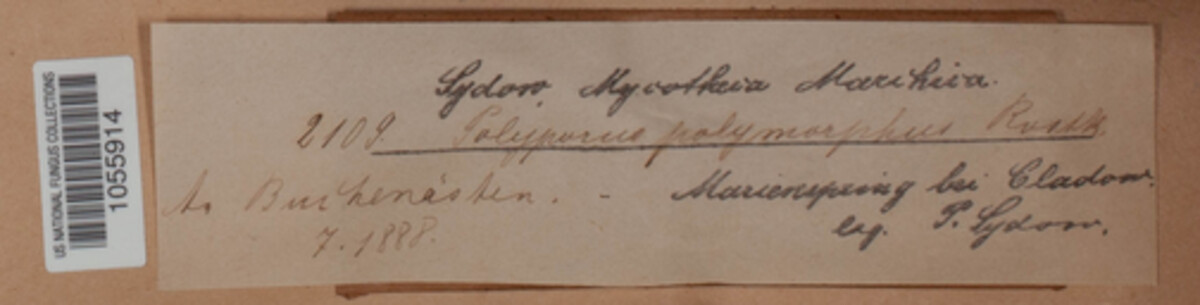 US NATIONAL FUNGUS COLLECTIONS
1055914
Sydow, Mycotheca Marchica.
2109. Polyporus polymorphus Rostk.
An Buchenästen. - Marienspring bei Cladow.
7. 1888. leg. P. Sydow.